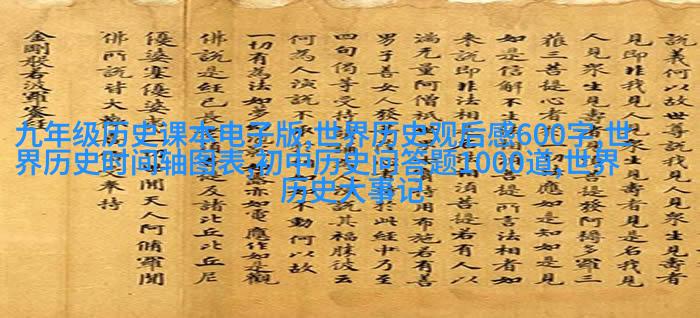 九年级历史课本电子版,世界历史观后感600字,世
界历史时间轴图表,初中历史问答题1000道,世界
历史大事记
說義何以故世尊說我見人見眾生見壽者
見即非我見人見眾生見壽者見是名我見
人見眾生見壽者見 發阿耨多羅三
藐三菩提心者 應如是知如是見
如是信解不生 菩提所言法相者如
來說即非法相 菩提若有人以
滿无量阿僧祇 持用布施若有善
男子善女人發 於此經乃至
四句偈等受持 說其福勝彼云
何為人演說不 不動何以故
一切有為法如 亦如電應作如是觀
佛說是經已長老 及諸比丘比丘尼
優婆塞優婆 間天人阿脩羅聞
佛所說皆大 奉持
金剛般若波羅蜜